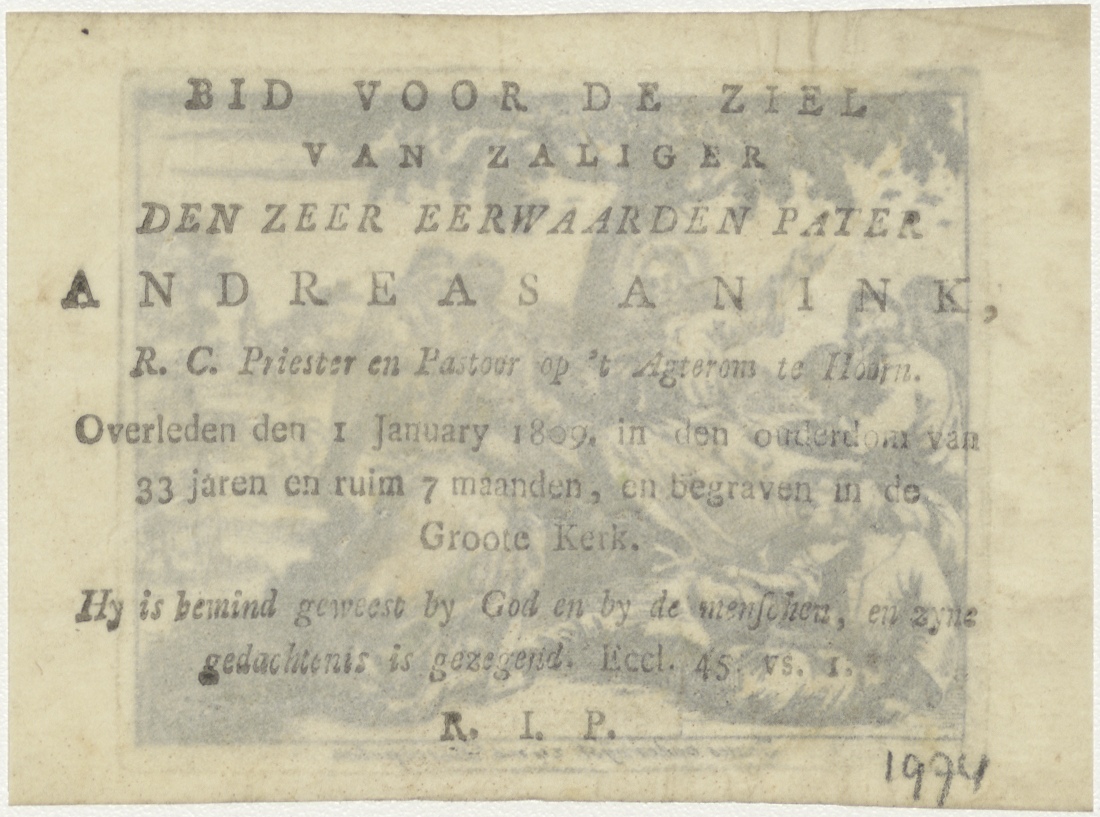 BID VOOR DE ZIEL
VAN ZALIGER
DEN ZEER EERWAARDEN PATER
ANDREAS ANINK,
R. C. Priester en Pastoor op 't Agterom te Hoorn.
Overleden den 1 January 1809. in den ouderdom van
33 jaren en ruim 7 maanden, en begraven in de
Groote Kerk.
Hy is bemind geweest by God en by de menschen, en zyne
gedachtenis is gezegend. Eccl. 45. vs. 1.
R. I. P.
1994